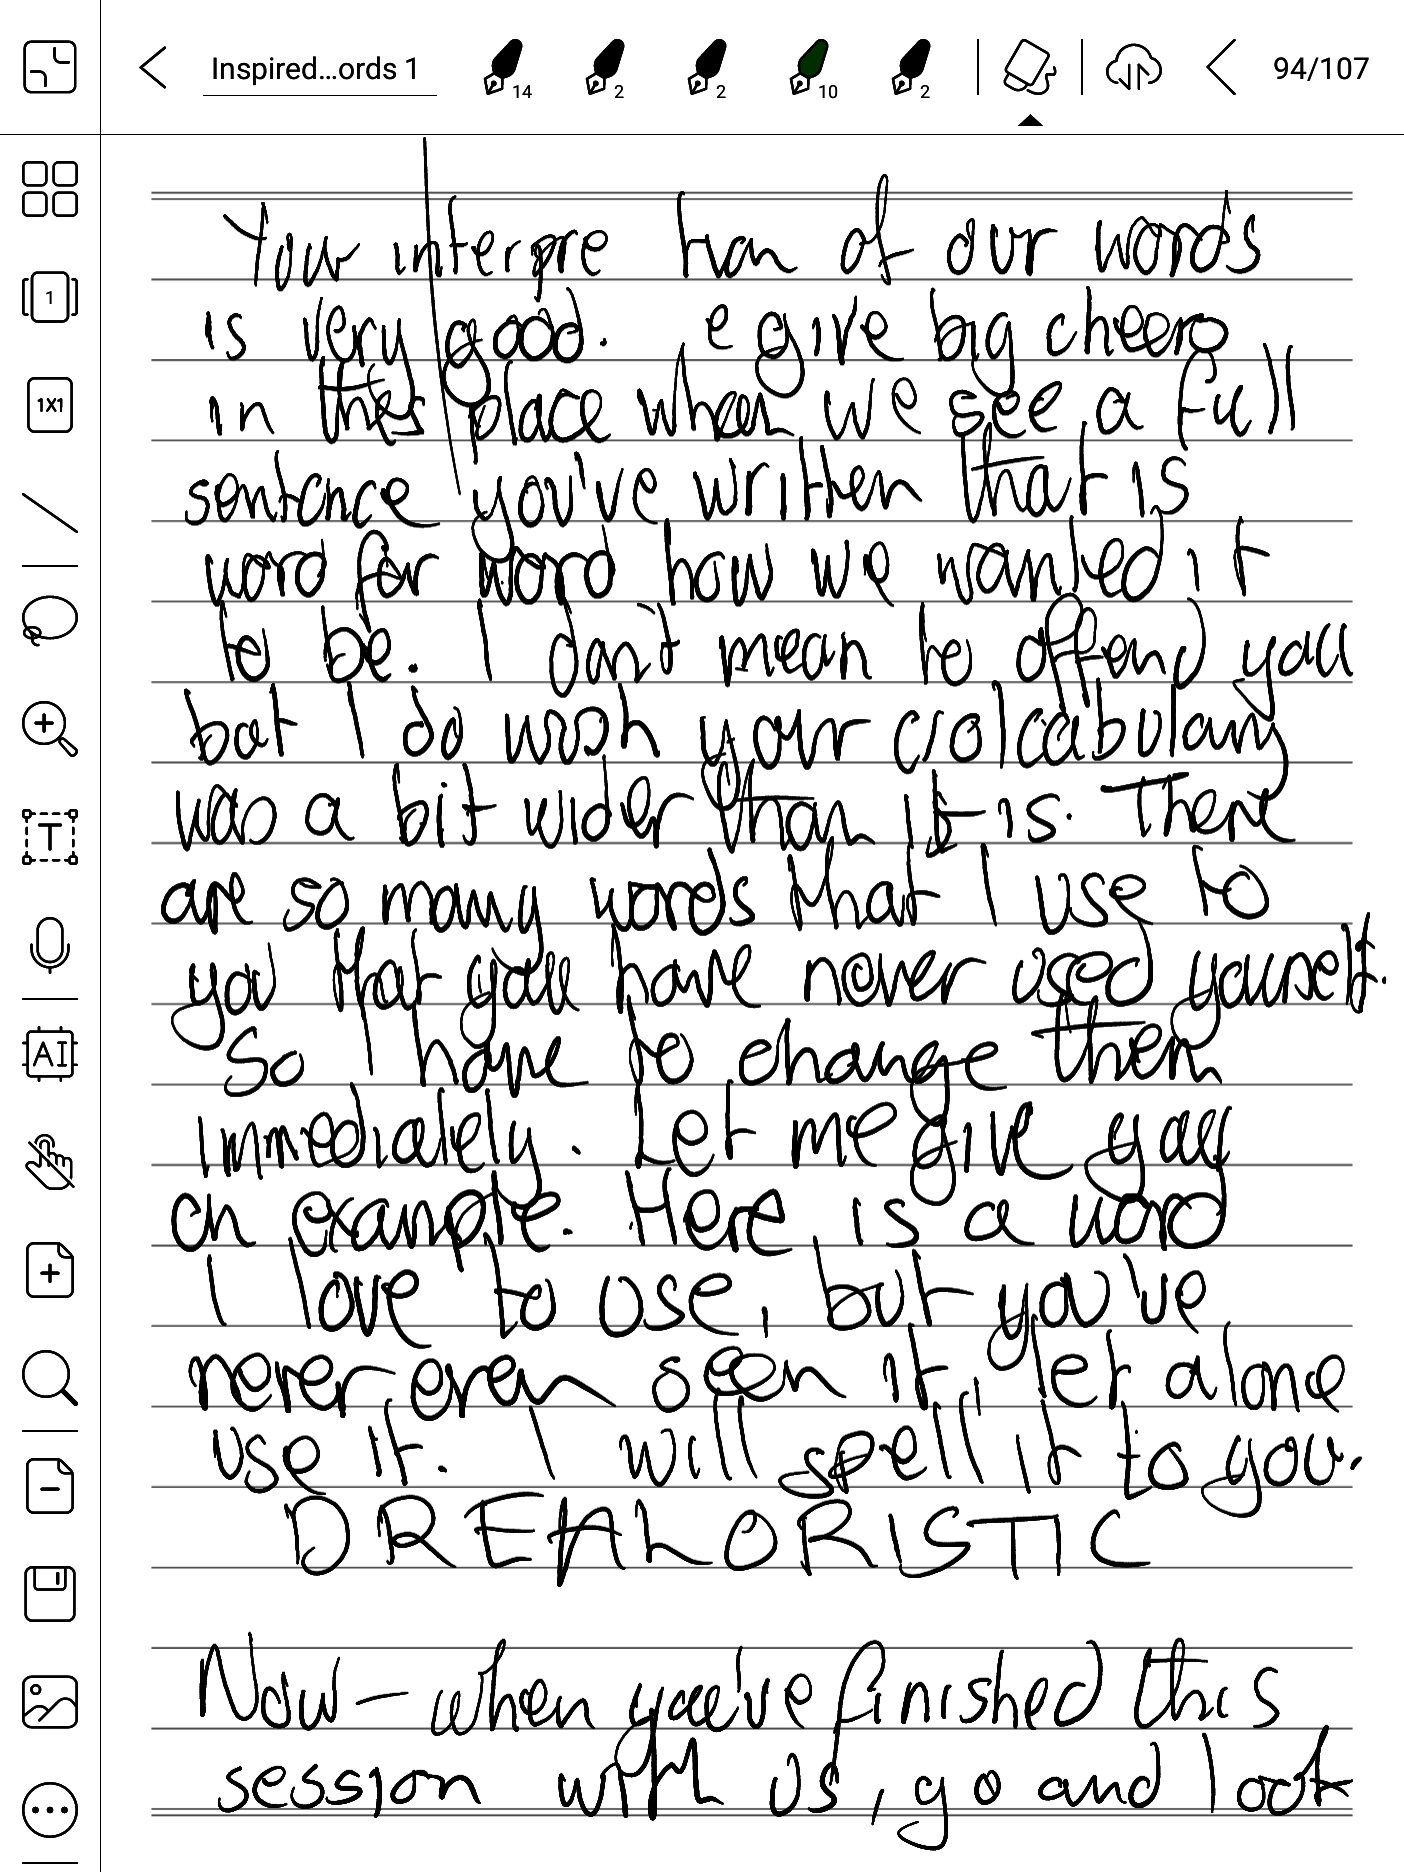 Inspired...ords 1 14 2 2 10 2 94/107
1
1X1
T
AI
Your interpre tion of our words
is very good. e give big cheers
in this place when we see a full
sentence you've written that is
word for word how we wanted it
to be. I don't mean to offend yall
but I do wish your
was a bit wider than it is. There
are so many words that I use to
you that yall have never used yourself.
So I have to change them
immediately. Let me give yall
an example. Here is a word
I love to use, but you've
never even seen it, let alone
use it. I will spell it to you.
DREALORISTIC
Now - when you've finished this
session with us, go and look